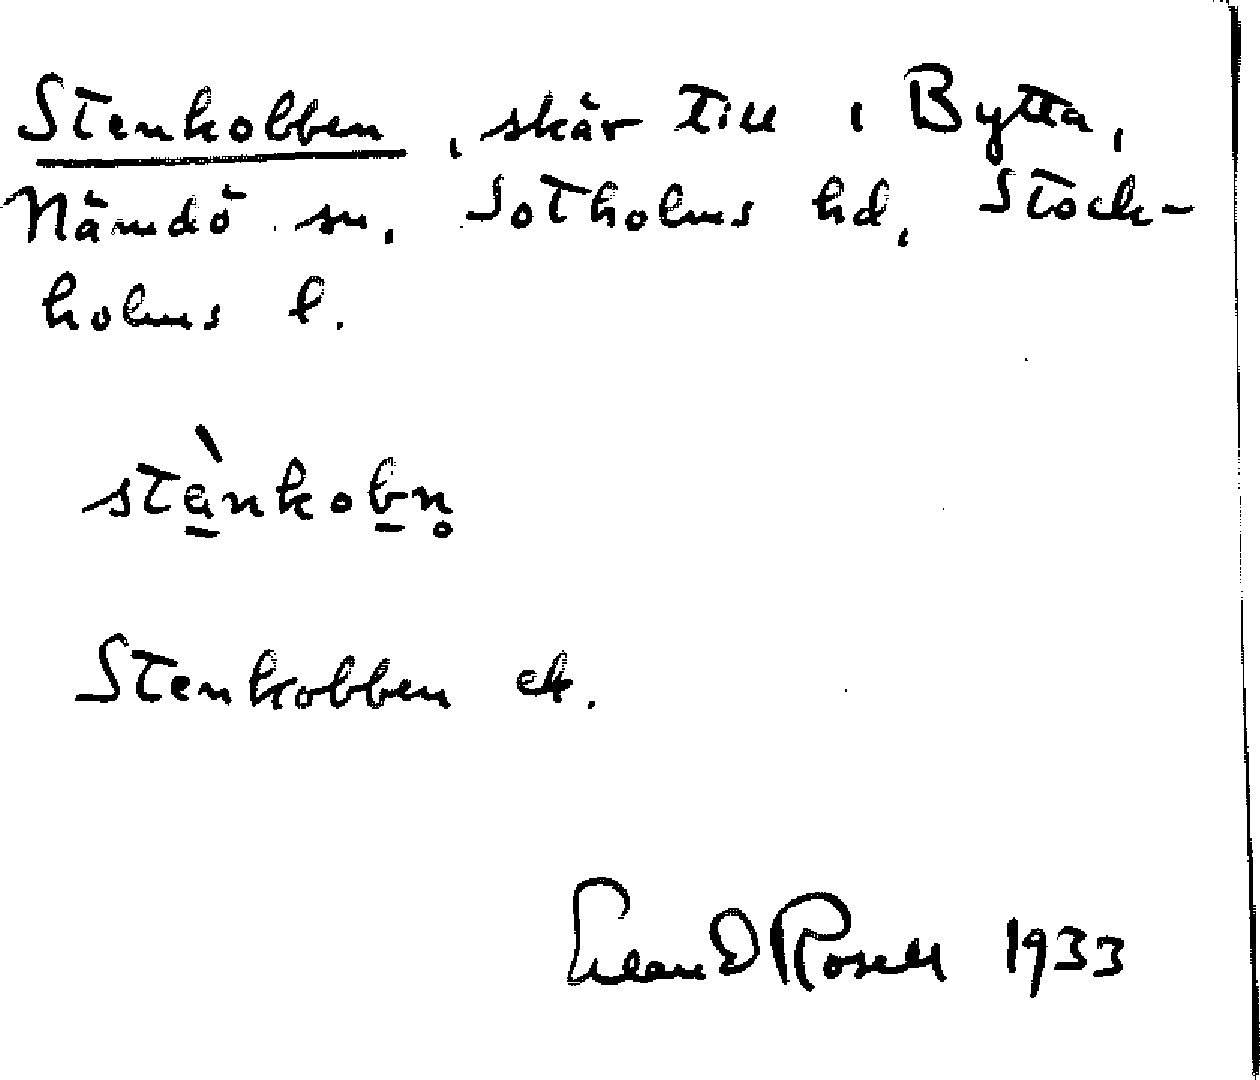 Stenkobben, skär till 1 Bytta,
Nämdö sn, Sotholms hd, Stock-
holms l.
stànkobn̥
Stenkobben ek.
Rosell 1933